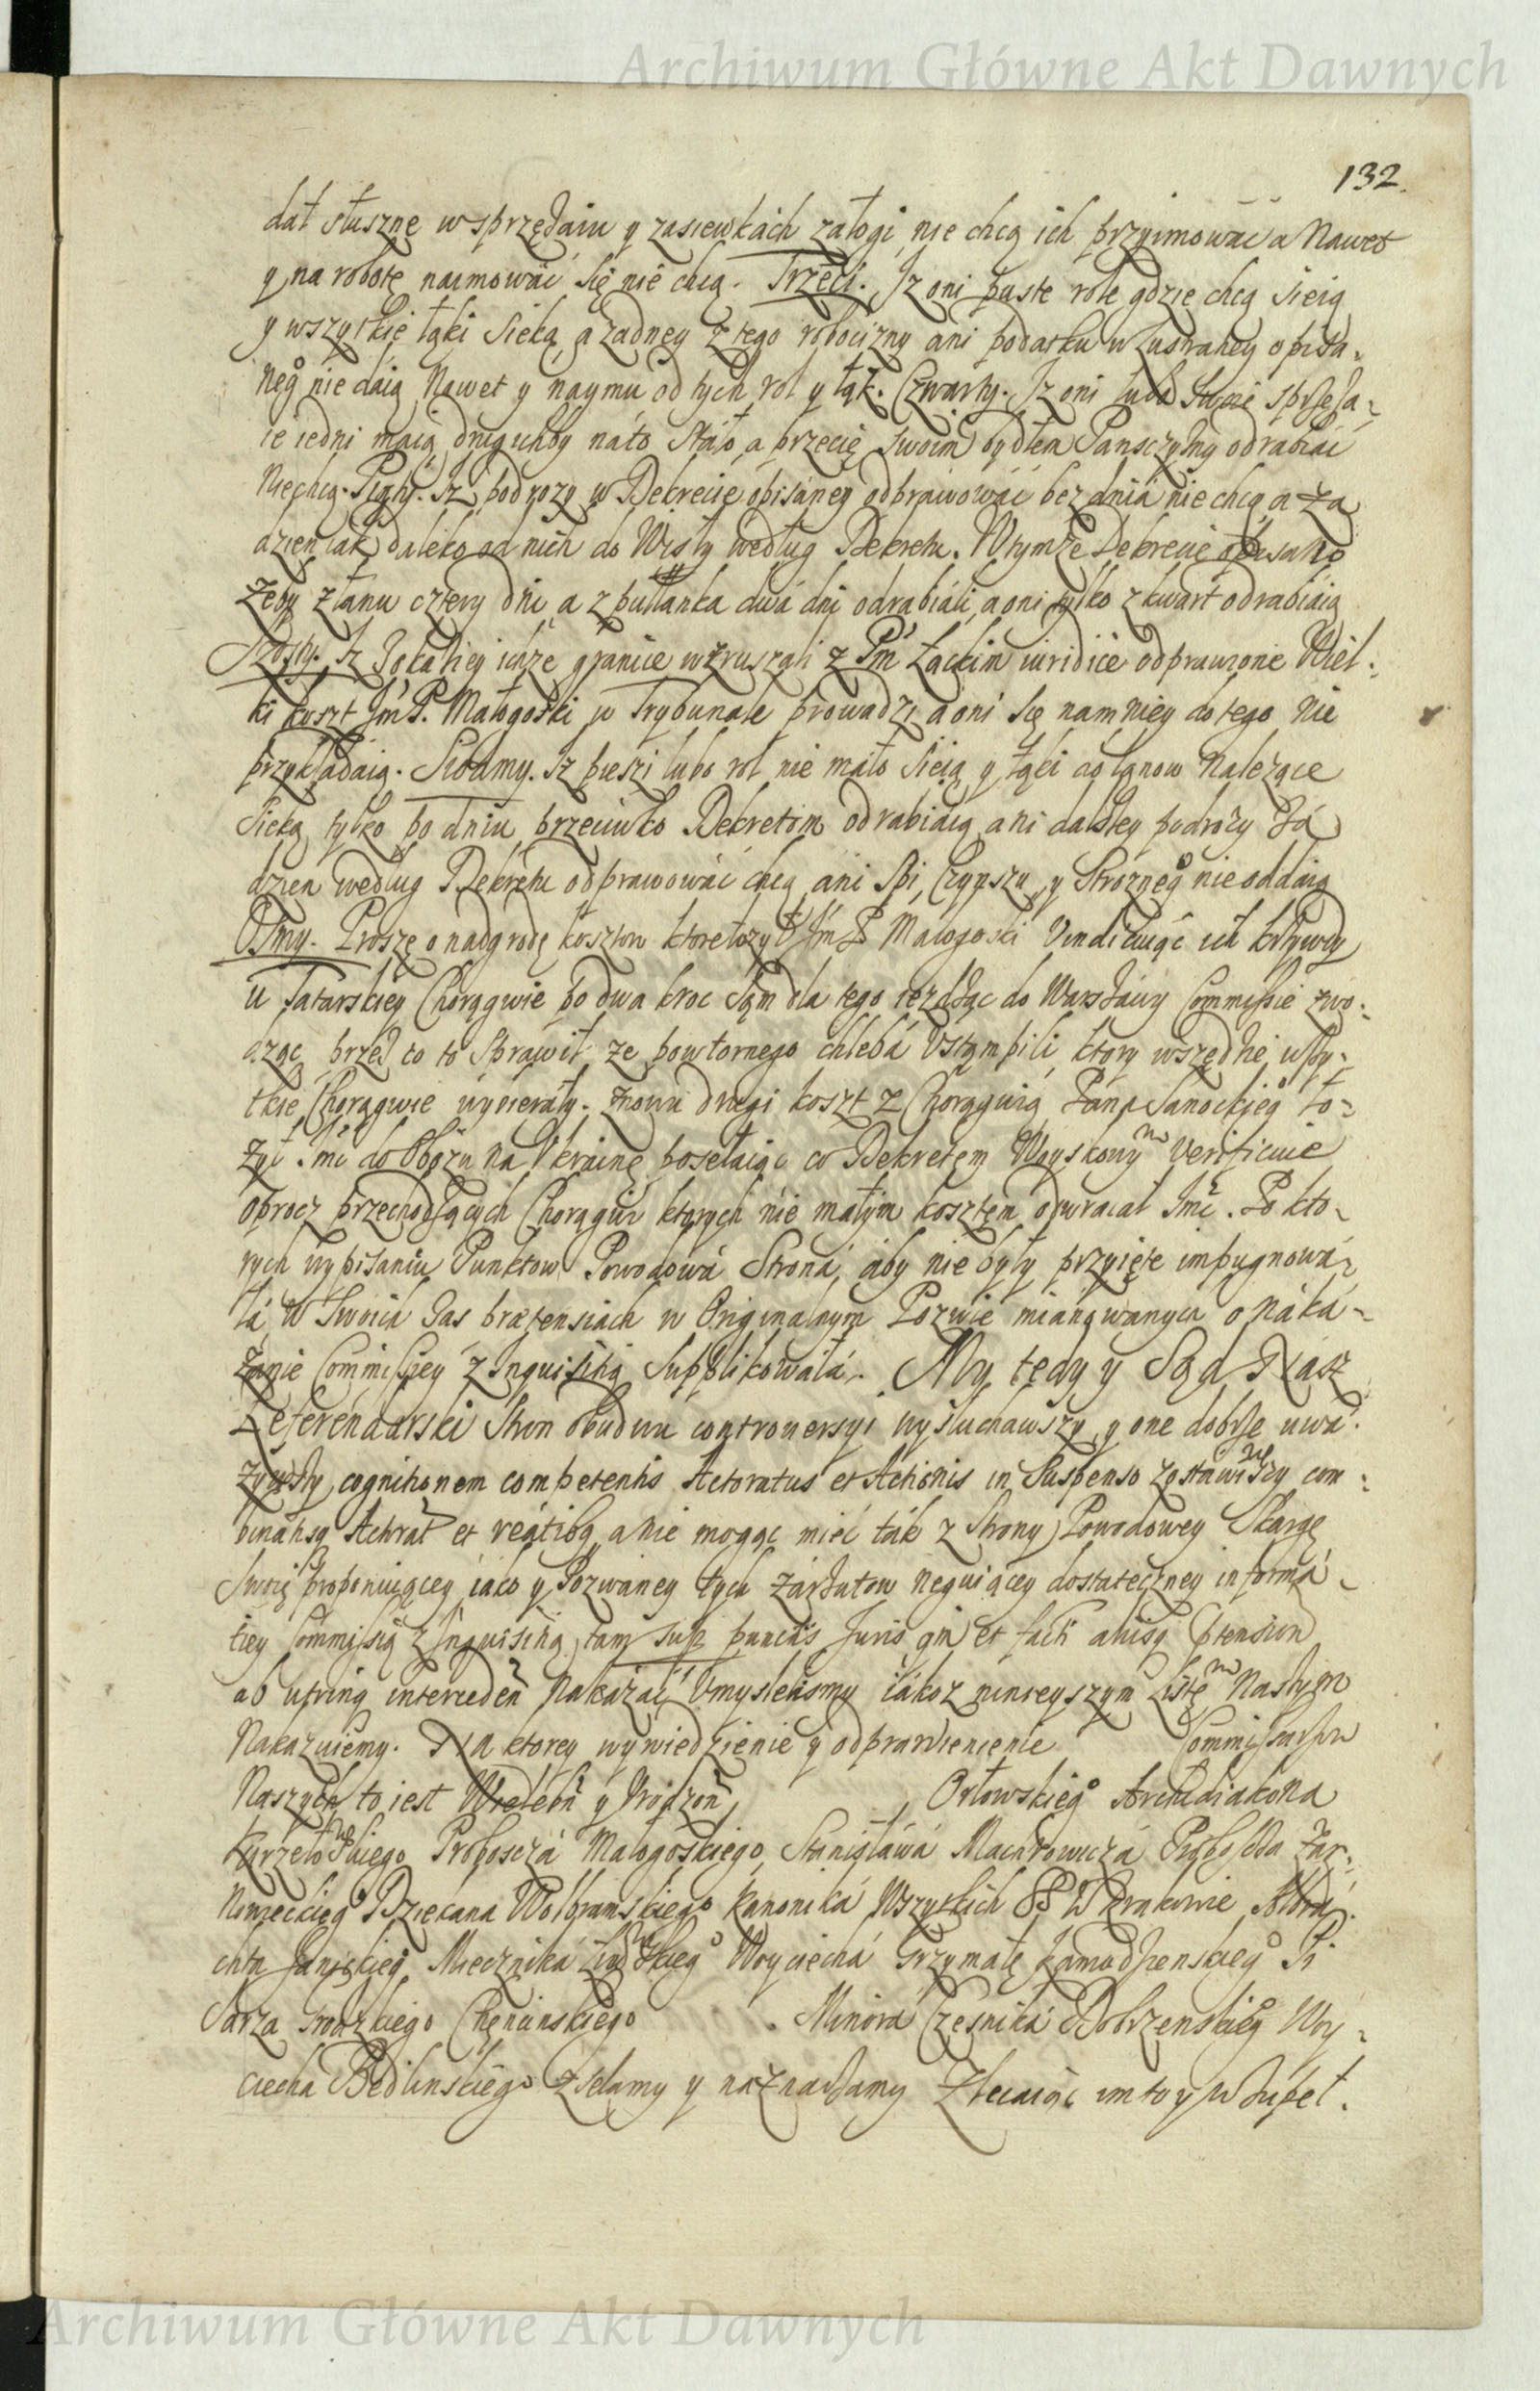 Archiwum Główne Akt Dawnych
132.
dał słuszne w sprzężaiu y zasiewkach załogi, nie chcą ich przyimować a Nawet
y na robotę naimować się nie chcą. Trzeci. Iz oni puste role gdzie chcą sieią
y wszytkie łąki sieką a żadney z tego robocizny ani podatku w Lustracyey opisa-
neg° nie daią Nawet y naymu od tych rol y łąk. Czwarty. Iz oni lubo swoie sprzęża-
ie iedni maią drugichby na to stało, a przecię swoim bydłem Pansczyzny odrabiać
Niechcą. Piąty. Iz podrozy w Dekrecie opisaney odprawować bez dnia nie chcą a za
dzień iak daleko od nich do Wisły według Dekretu. W tymze Dekrecie opisano
zeby z łanu cztery dni a z pułłanka dwa dni odrabiali, a oni tylko z kwart odrabiaią
Szosty. Iz Dokąd iey ichże granice wzruszali z Pm Łąckim iuridice odprawione Wiel-
ki koszt Jm P. Małogoski w Trybunale prowadzi, a oni się namniey do tego nie
przykładaią. Siodmy. Iz pieszi lubo rol nie mało sieią y łąki do łanow Należące
sieką, tylko po dniu przeciwko Dekretom odrabiaią, ani dalszey podroży za
dzien według Dekretu odprawować chcą, ani Spi, Czynszu, y Strożneg° nie oddaią
Osmy. Proszę o nadgrodę kosztow ktore łożył Jm P Małogoski Vindicuiąc ich krzywdy
u Tatarskiey Chorągwie po dwa kroc sam dla tego iezdząc do Warszawy Commissie zwo-
dząc, przez co to sprawił, ze powtornego chleba Vstąmpili, ktory wszędzie wszy-
tkie Chorągwie wybierały. Znowu drugi koszt z Chorągwią Pana Sanockieg° ło-
żył Jmć do Obozu na Vkrainę posełaiąc co Dekretem Woyskowym Verificuie
oprocz przechodzących Chorągwi ktorych nie małym kosztem odwracał Jmć. Po kto-
rych wypisaniu Punktow Powodowa Strona, aby nie były przyięte impugnowa-
ła, w swoich zas prætensiach w Originalnym Pozwie mianowanych o naka-
zanie Commissiey z Inquisitią supplikowała. My tedy y Sąd Nasz
Referendarski Stron obudwu controuersyi wysłuchawszy, y one dobrze uwa-
żywszy, cognitionem competentis Actoratus et Actionis in Suspenso zostawiwszy com-
binatisq Actorat et reatibq, a nie mogąc mieć tak z strony Powodowey Skargę
Swoię proponuiącey, iako y Pozwaney tych zarzutow neguiącey dostateczney informa-
tiey Commissią z Inquisitią, tam sup punctis Juris qm et facti alijsq ptension
ab utrinq interceden nakazać Vmyslelismy iakoz ninieyszym Listem Naszym
Nakazuiemy. Na ktorey wywiedzienie y odprawienienie Commissarzw
Naszych to iest Wieleb y Vrodzon, Orłowskieg° Archidiakona
Kurzelowskiego, Proboscza Małogoskiego, Stanisława Macharowicza Proboscza Żar-
Nowieckieg° Dziekana Wolbramskiego kanonika Wszytkich SS W Krakowie, Woy
Miecznika Woyciecha Grzymałę Pi
sarza Grodzkiego Chęcinskiego Minora Czesnika Dobrzenskieg° Woy-
ciecha Bedlinskiego zsełamy y naznaczamy Zlecaiąc im to y w zupeł.
Archiwum Główne Akt Dawnych